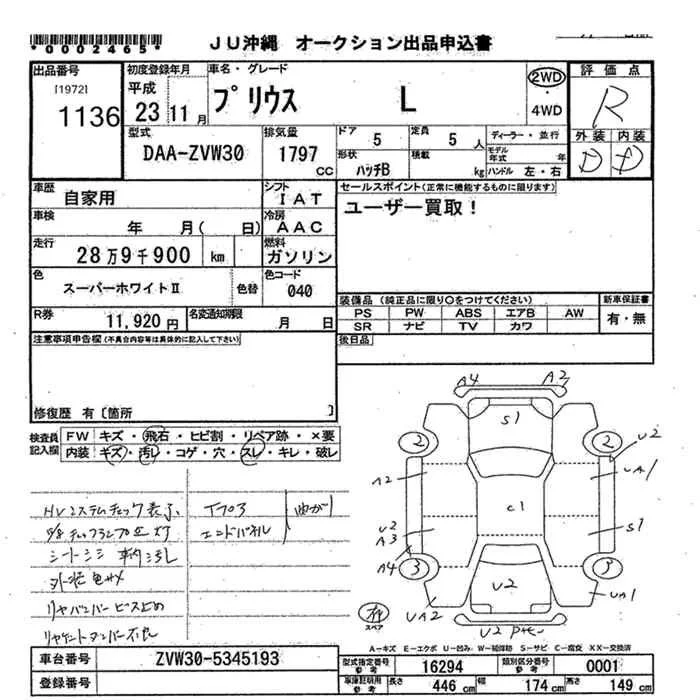 *0002465*
JU沖縄 オークション出品申込書
出品番号
[1972]
1136
初度登録年月
平成
23 11 月
車名・グレード
プリウス L
2WD
・
4WD
評価点
R
外装 内装
D D
型式
DAA-ZVW30
排気量
1797
CC
ドア
5
定員
5 人
形状
ハッチB
積載
kg
ディーラー・並行
モデル年式 年
ハンドル 左・右
車歴
自家用
シフト
IAT
車検
年 月( 日)
冷房
AAC
走行
28万9千900 km
燃料
ガソリン
色
スーパーホワイトⅡ
色替
色コード
040
R券
11,920 円
名変通知期限
月 日
セールスポイント(正常に機能するものに限ります)
ユーザー買取!
装備品 (純正品に限り○をつけてください)
PS PW ABS エアB AW
SR ナビ TV カワ
新車保証書
有・無
後日品
注意事項申告欄(不具合内容等は具体的に記入して下さい)
修復歴 有〔箇所 〕
検査員記入欄
FW キズ・飛石・ヒビ割・リペア跡・×要
内装 キズ・汚レ・コゲ・穴・スレ・キレ・破レ
HVシステムチェック表示、
エンドパネル
曲がり
リヤバンパービス止め
A4 A2
S1
2 2
U2
A2
UA1
C1
U2
A3
S1
A4
3 3
U2
UA2
UA1
U2
スペア
A−キズ E−エクボ U−凹み W−補修跡 S−サビ C−腐食 XX−交換済
車台番号
ZVW30-5345193
登録番号
型式指定番号 参考
16294
類別区分番号 参考
0001
車庫証明用 参考
長さ 446 cm
幅 174 cm
高さ 149 cm